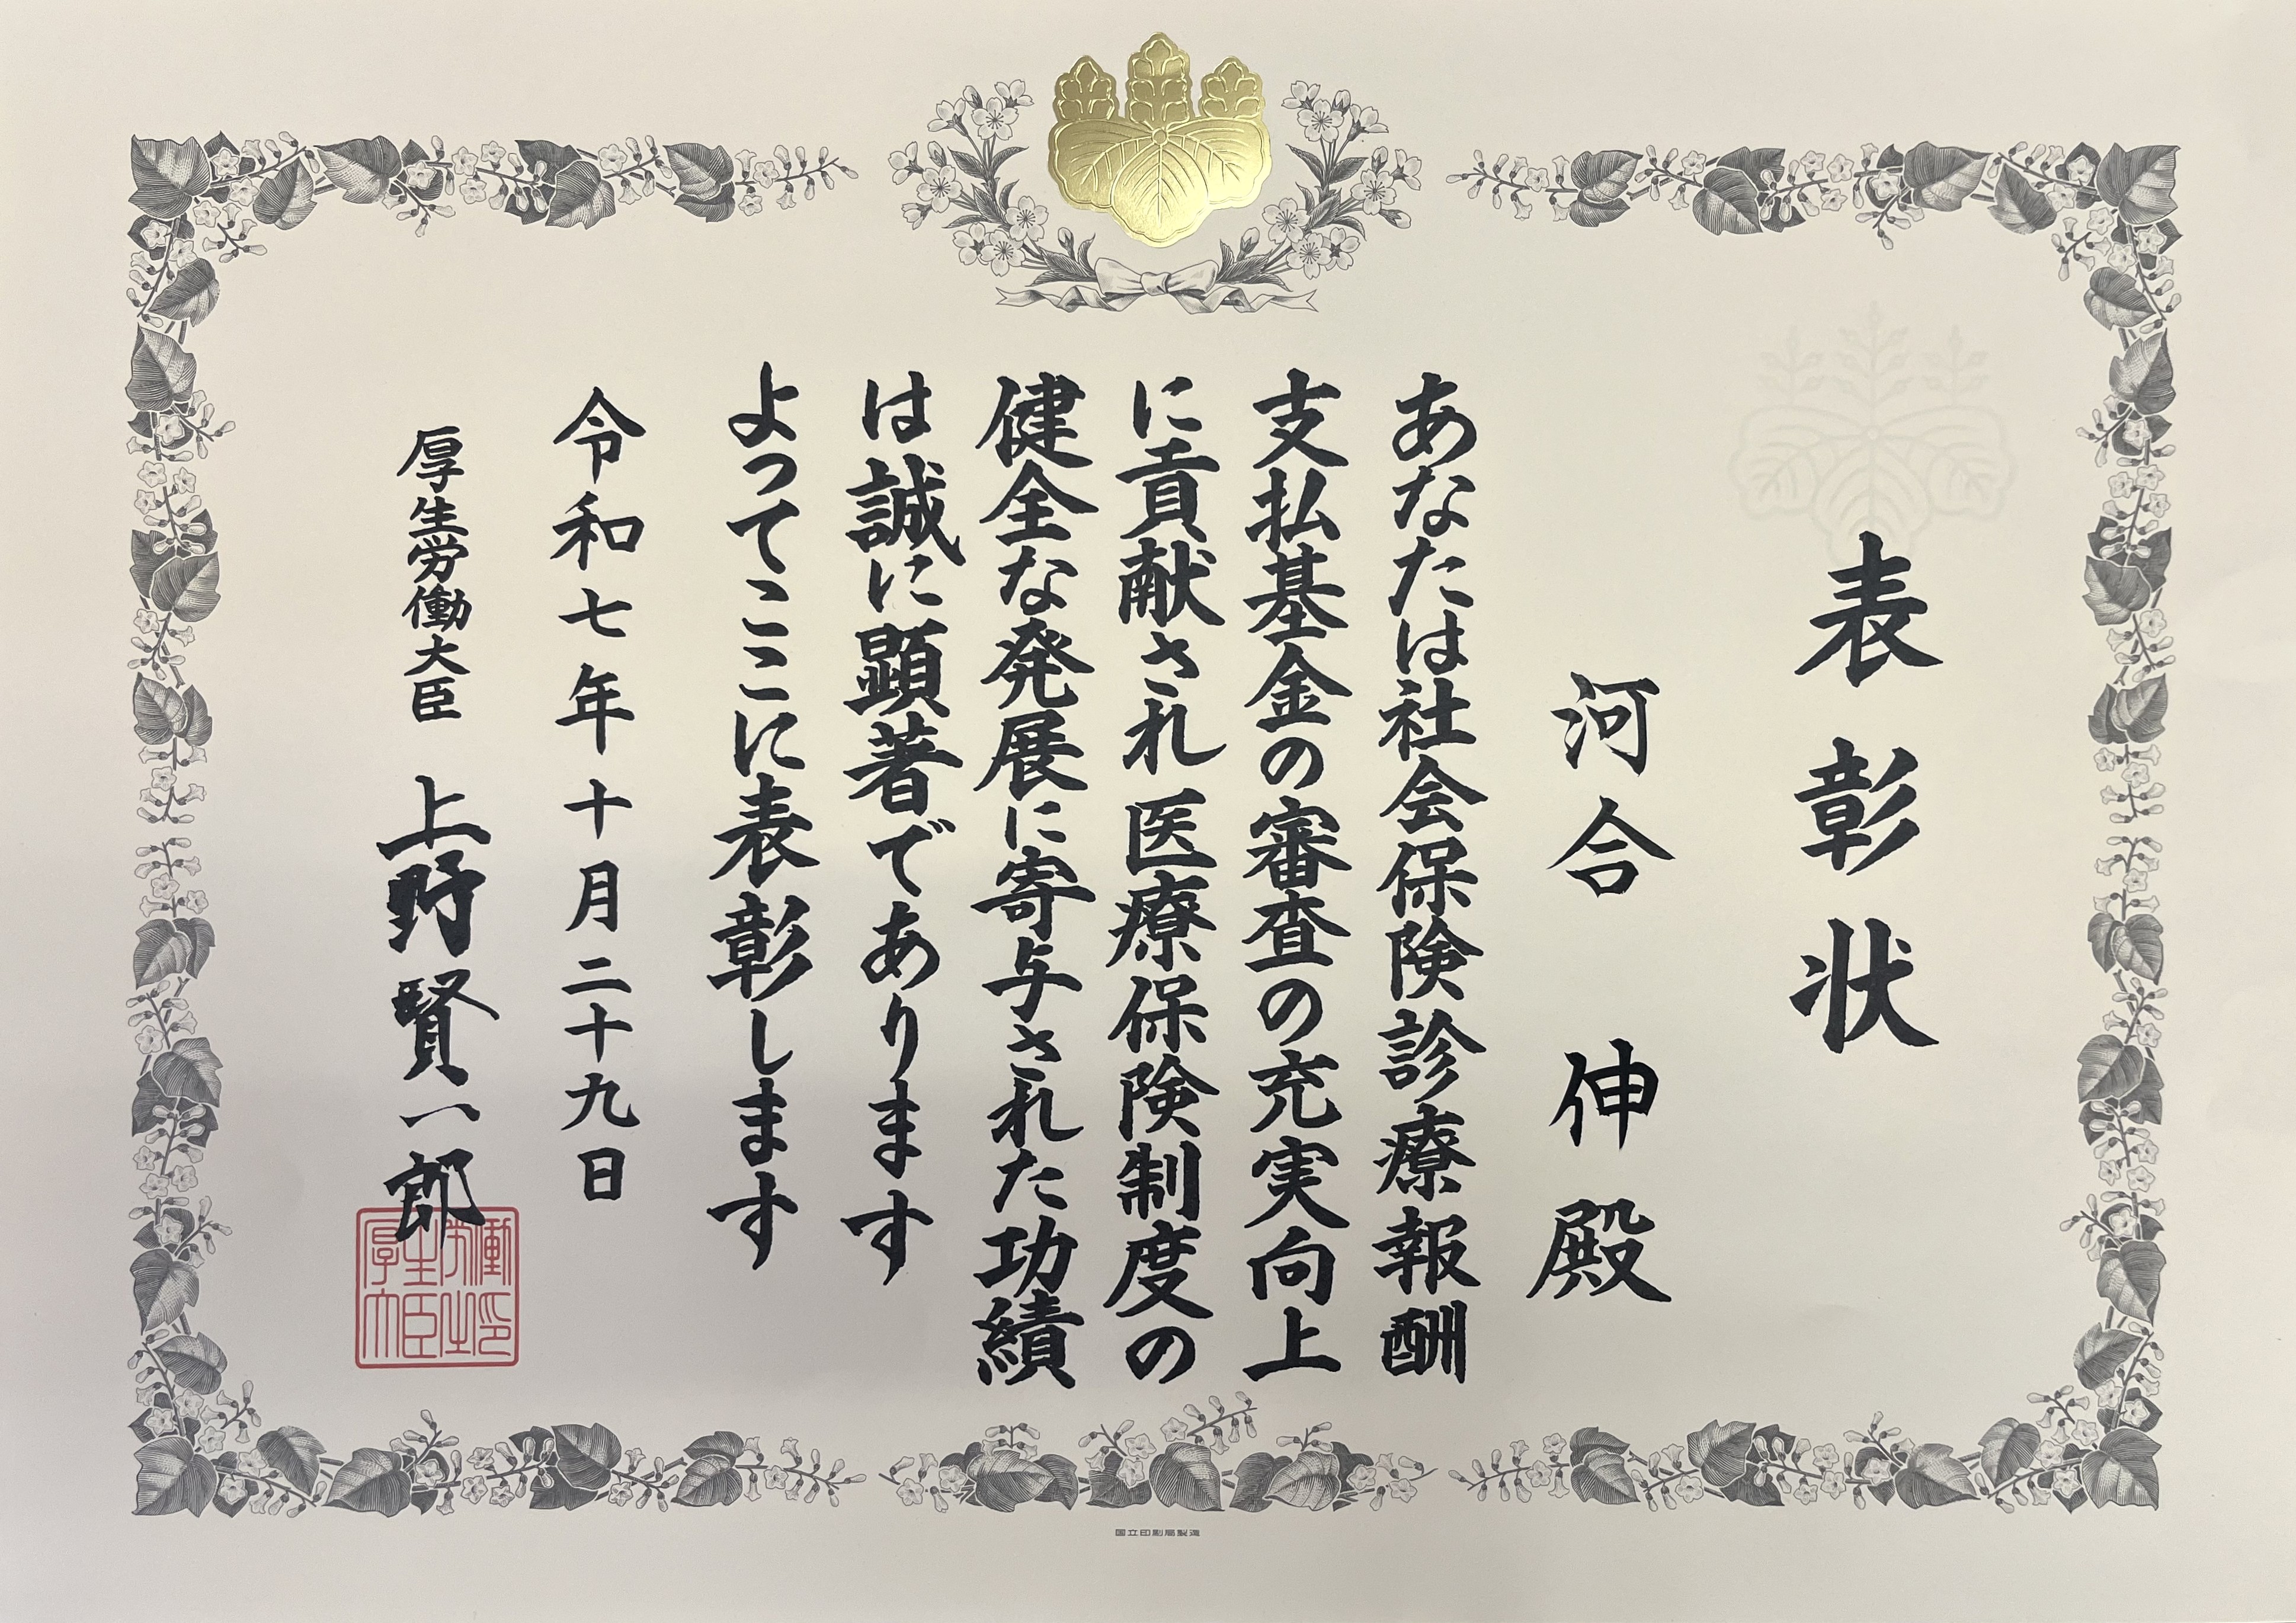 表彰状
河合 伸 殿
あなたは社会保険診療報酬
支払基金の審査の充実向上
に貢献され医療保険制度の
健全な発展に寄与された功績
は誠に顕著であります
よってここに表彰します
令和七年十月二十九日
厚生労働大臣 上野賢一郎
厚生労働大臣之印
国立印刷局製造